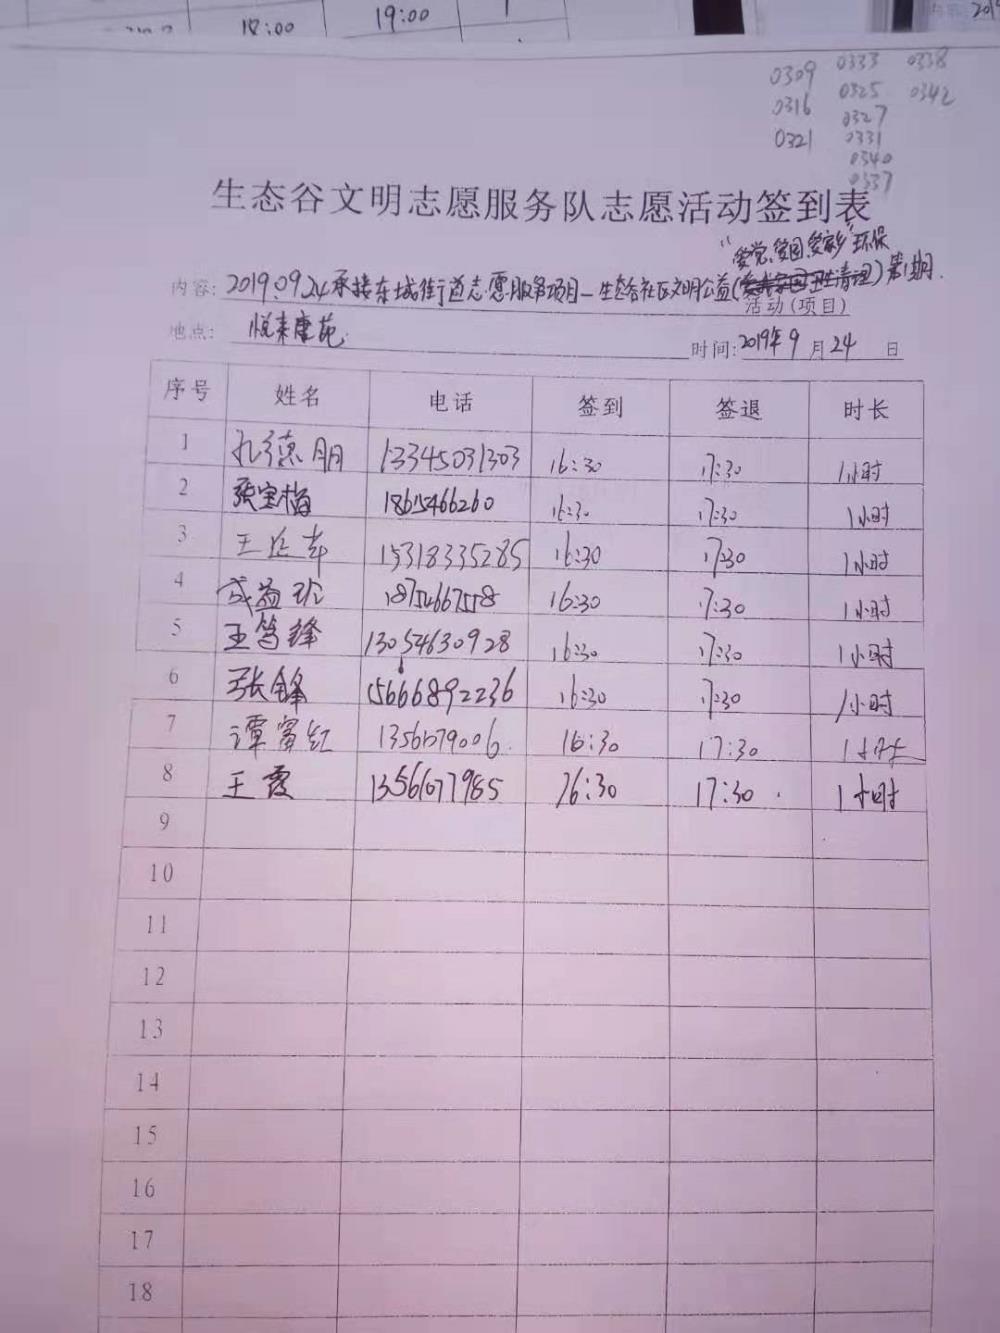 18:00 19:00
0309 0333 0338
0316 0325 0342
0327
0321 0331
0340
0337
生态谷文明志愿服务队志愿活动签到表
"爱党、爱国、爱家乡"环保
内容: 2019.09.24承接东城街道志愿服务项目-生态谷社区文明公益(卫生清理)第1期.
活动(项目)
地点: 悦来康苑. 时间: 2019年9月24日
序号 姓名 电话 签到 签退 时长
1 孔德明 13345031303 16:30 17:30 1小时
2 张宝梅 18615466260 16:30 17:30 1小时
3 王 15318335285 16:30 17:30 1小时
4 成益 18754667558 16:30 17:30 1小时
5 王笃锋 13054630928 16:30 17:30 1小时
6 张锋 15666892236 16:30 17:30 1小时
7 谭富红 16:30 17:30 1小时
8 王霞 16:30 17:30 1小时
9
10
11
12
13
14
15
16
17
18